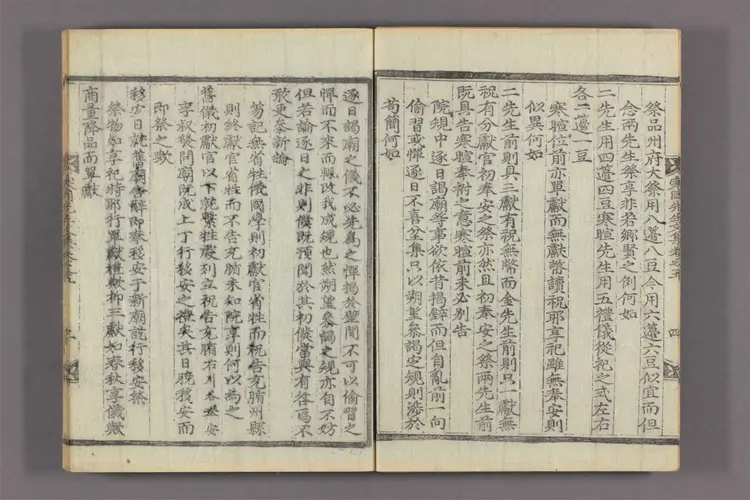 祭品州府大祭用八籩八豆今用六籩六豆似宜而但
念兩先生祭享非若鄉賢之例何如
二先生用四籩四豆寒暄先生用五禮儀從祀之式左右
各二籩一豆
寒暄位前亦單獻而無獻幣讀祝耶享祀雖無奉安則
似異何如
二先生前則具三獻有祝無幣而金先生前則只一獻無
祝有分獻官初奉安之祭亦然且初奉安之祭兩先生前
既具告寒暄奉祔之意寒暄前未必別告
院規中逐日謁廟等事欲依昔揭錄而但自亂前一向
偷習或憚逐日不喜坌集只以朔望叅謁定規則涉於
苟簡何如
逐日謁廟之儀不必先爲之憚揭於壁間不可以偷習之
憚而不來而輒改我成規也然朔望叅謁之規亦自不妨
但若論逐日之非則僕既預聞於其初儀當與有咎焉不
敢更叅新論
笏記無省牲儀國學則初獻官省牲而祝告充腯州縣
則終獻官省牲而不告充腯未知院享則何以爲之
舊儀初獻官以下就繫牲處列立祝告充腯
享叔發問廟既成上丁行移安之禮矣其日晚移安而
即祭之歟
移安日就舊廟告辭即奉移安于新廟說行移安祭
祭物如享祀時耶行單獻禮歟抑三獻如春秋享儀歟
商量降品而單獻